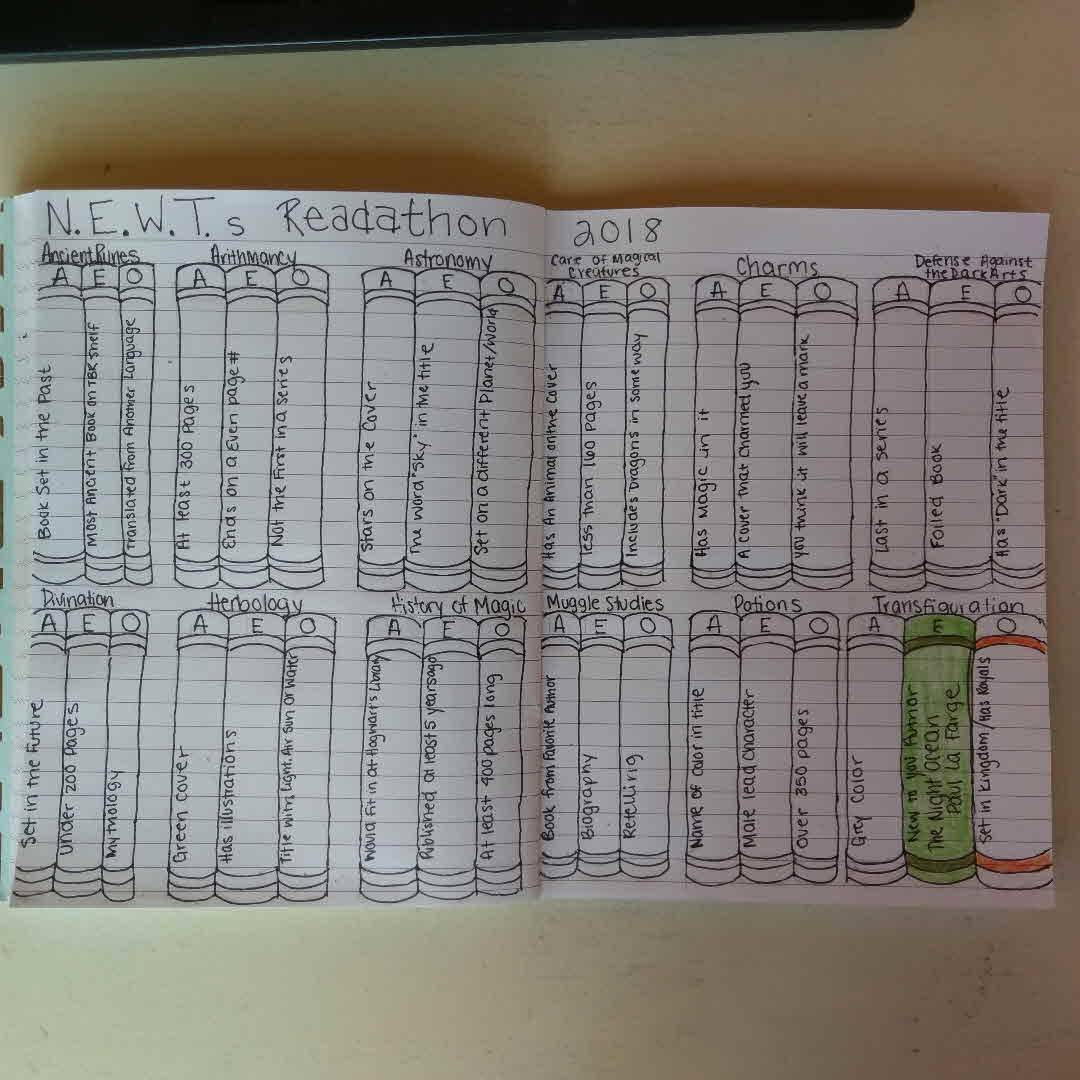 N.E.W.T.s Readathon 2018
Ancient Runes
A E O
Book Set in the Past
Most Ancient Book on TBR Shelf
Translated from Another Language
Arithmancy
A E O
At least 300 Pages
Ends on a Even page #
Not the First in a series
Astronomy
A E O
Stars on the Cover
The word "Sky" in the title
Set on a different Planet/World
Care of Magical
Creatures
A E O
Has An Animal on the Cover
less than 160 Pages
Includes Dragons in some way
Charms
A E O
Has Magic in it
A cover that Charmed you
you think it will leave a mark
Defense Against
the Dark Arts
A E O
Last in a series
Foiled Book
Has "Dark" in the title
Divination
A E O
Set in the Future
Under 200 Pages
Mythology
Herbology
A E O
Green cover
Has illustrations
Title with Light, Air Sun or Water
History of Magic
A E O
Would Fit in at Hogwart's Library
Published at least 5 years ago
At least 400 pages long
Muggle Studies
A E O
Book from Favorite Author
Biography
Retelling
Potions
A E O
Name of Color in title
Male lead Character
Over 350 pages
Transfiguration
A E O
Grey Color
New to you Author
The Night Ocean
Paul La Farge
Set in Kingdom/Has Royals